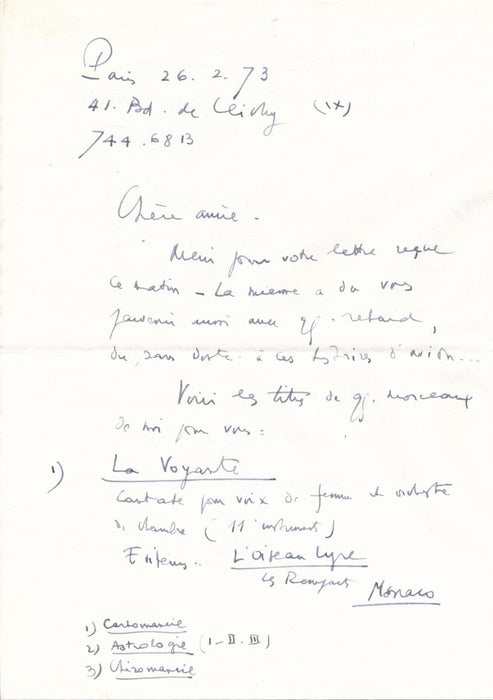 Paris 26.2.73
41. Bd. de Clichy (IX)
744.6813
Chère amie.
Merci pour votre lettre reçue
ce matin - La mienne a du vous
parvenir aussi avec qq. retard,
du, sans doute à ces histoires d'avion...
Voici les titres de qq. morceaux
de moi pour vous :
1) La Voyante
Cantate pour voix de femme et orchestre
de chambre (11 instruments)
L'Oiseau Lyre
Les Remparts
Monaco
1) Cartomancie
2) Astrologie (I-II-III)
3) Chiromancie